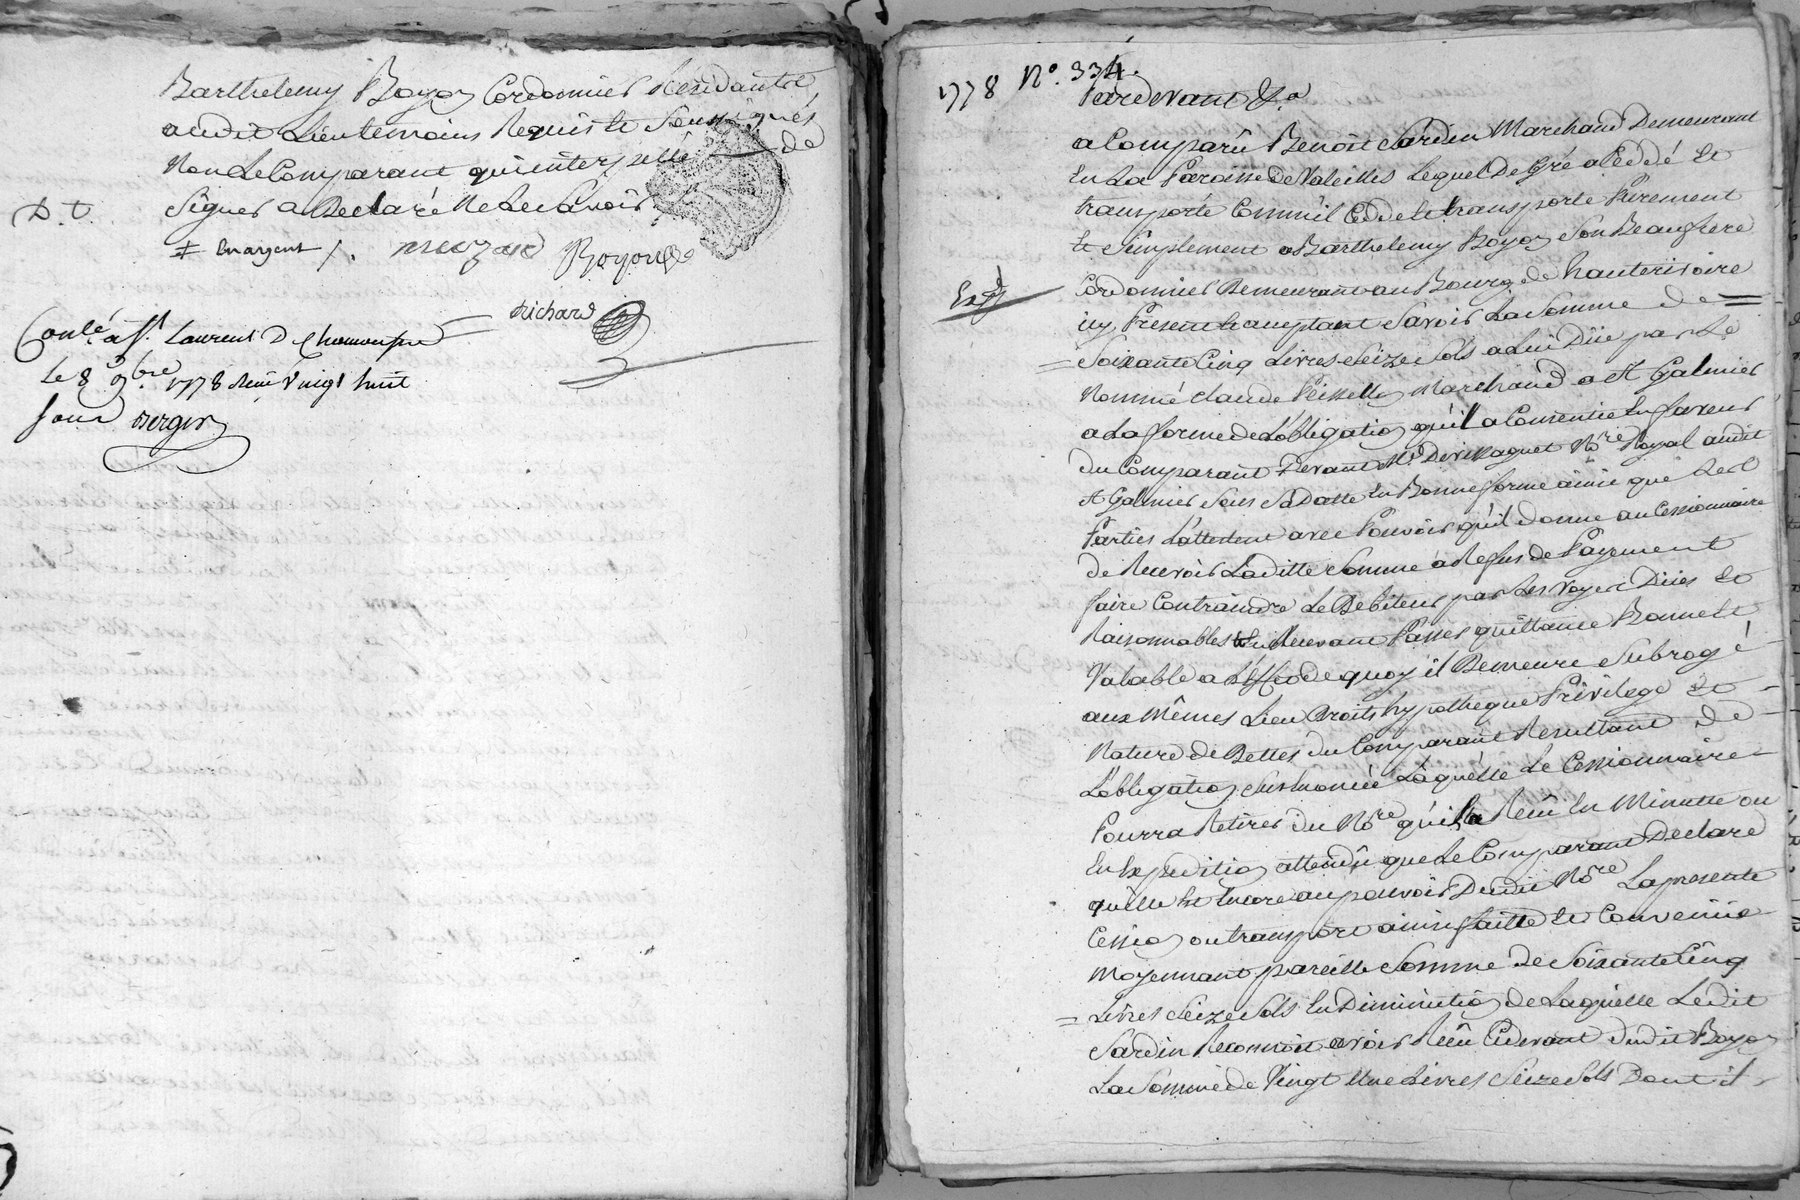 Barthelemy Boyoz Cordonnier Residants
audit Lieu temoins Requis et Soussignés
Non Le Comparant qui interpellé de
Signer a Declaré Ne Le Sçavoir
D. t.
‡ En argent /. Boyoud
Richard
Conlé. a St. Laurent D Chamousset
Le 8 9bre 1778 Reçu Vingt huit
Sous Berger
1778 No. 334.
Pardevant &a
a Comparû Benoit Sardin Marchand Demeurant
En La Paroisse De Valeilles Lequel De Gré a Cédé et
transporté Comme il Cede et transporte Purement
Et Simplement a Barthelemy Boyoz Son Beaufrere
Cordonnier Demeurant au Bourg de hauterivoire
icy Present Et acceptant Savoir La Somme de
Soixante Cinq Livres Seize Sols a Lui Düe par Le
Nommé Claude Marchand a St Galmier
a La forme de L'obligation qu'il a Consentie En faveur
du Comparant Devant Me. Nore Royal audit
St Galmier Sous Sa Datte En Bonne forme ainsi que Les
Parties L'attestent avec Pouvoir qu'il donne au Cessionnaire
de Recevoir Laditte Somme à Refus de Payement
faire Contraindre Le Debiteur par Les Voyes Dües Et
Raisonnables En Recevant Passer quittance Bonne Et
Valable a L'Effet de quoy il Demeure Subrogé
aux Mêmes Lieu Droits hypotheque Privilege Et
Nature de Dettes du Comparant Resultant De
L'obligation Susénoncée Laquelle Le Cessionnaire
Pourra Retirer du Nore qui L'a Reçû En Minutte ou
En Expedition attendû que Le Comparant Declare
qu'elle Est Encore au pouvoir Dudit Nore La presente
Cession ou transport ainsi faitte Et Convenüe
Moyennant pareille Somme De Soixante Cinq
Livres Seize Sols En Diminution de Laquelle Ledit
Sardin Reconnoit avoir Reçû Cidevant dudit Boyoz
La Somme de Vingt Une Livres Seize Sols Dont il